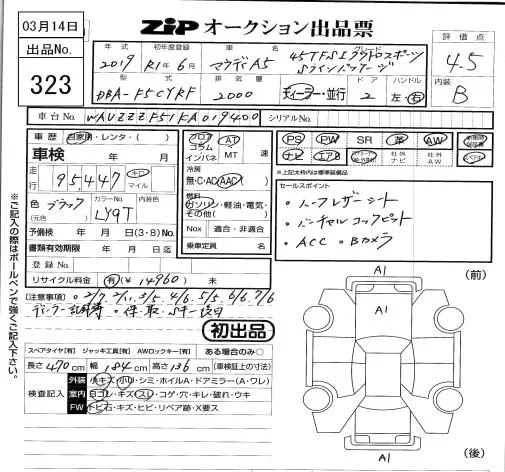 03月14日
ZiP オークション出品票
出品No.
323
評価点
4.5
内装
B
年式 初年度登録 車名 グレード
2019 R1年6月 アウディA5 45TFSIクワトロスポーツ
Sラインパッケージ
型式 排気量 ドア ハンドル
DBA-F5CYRF 2000 ディーラー・並行 2 左・右
車台No. WAUZZZF51KA019400 シリアルNo.
車歴 自家用・レンタ・( )
車検 年 月
走行 95,447 キロ マイル
色 ブラック (元色) カラーNo. LY9T 内装色
予備検 年 月 日(3・8)No.
書類有効期限 年 月 日迄
登録No.
リサイクル料金 有(¥14960) 未
フロア コラム インパネ AT MT 速
冷房 無・C・AC・AAC
燃料 ガソリン・軽油・電気・その他( )
Nox 適合・非適合
乗車定員 名
PS PW SR 革 AW
ナビ エアB 社外ナビ 社外AW
※上記太枠内は標準装備品
セールスポイント
・ハーフレザーシート
・バーチャルコックピット
・ACC ・Bカメラ
(注意事項) 2/7 2/11 3/5 4/6 5/5 6/6 7/6
ディーラー記録簿 ・保・取・Sキー
初出品
スペアタイヤ【有】 ジャッキ工具【有】 AWロックキー【有】 ある場合のみ○
長さ470cm 幅184cm 高さ136cm (車検証上の寸法)
検査記入
外装 小キズ・小凹・シミ・ホイルA・ドアミラー(A・ワレ)
室内 ヨゴレ・キズ・スレ・コゲ・穴・キレ・破れ・ウキ
FW トビ石・キズ・ヒビ・リペア跡・X要ス
A1
(前)
A1
A1
(後)
※ご記入の際はボールペンで強くご記入下さい。